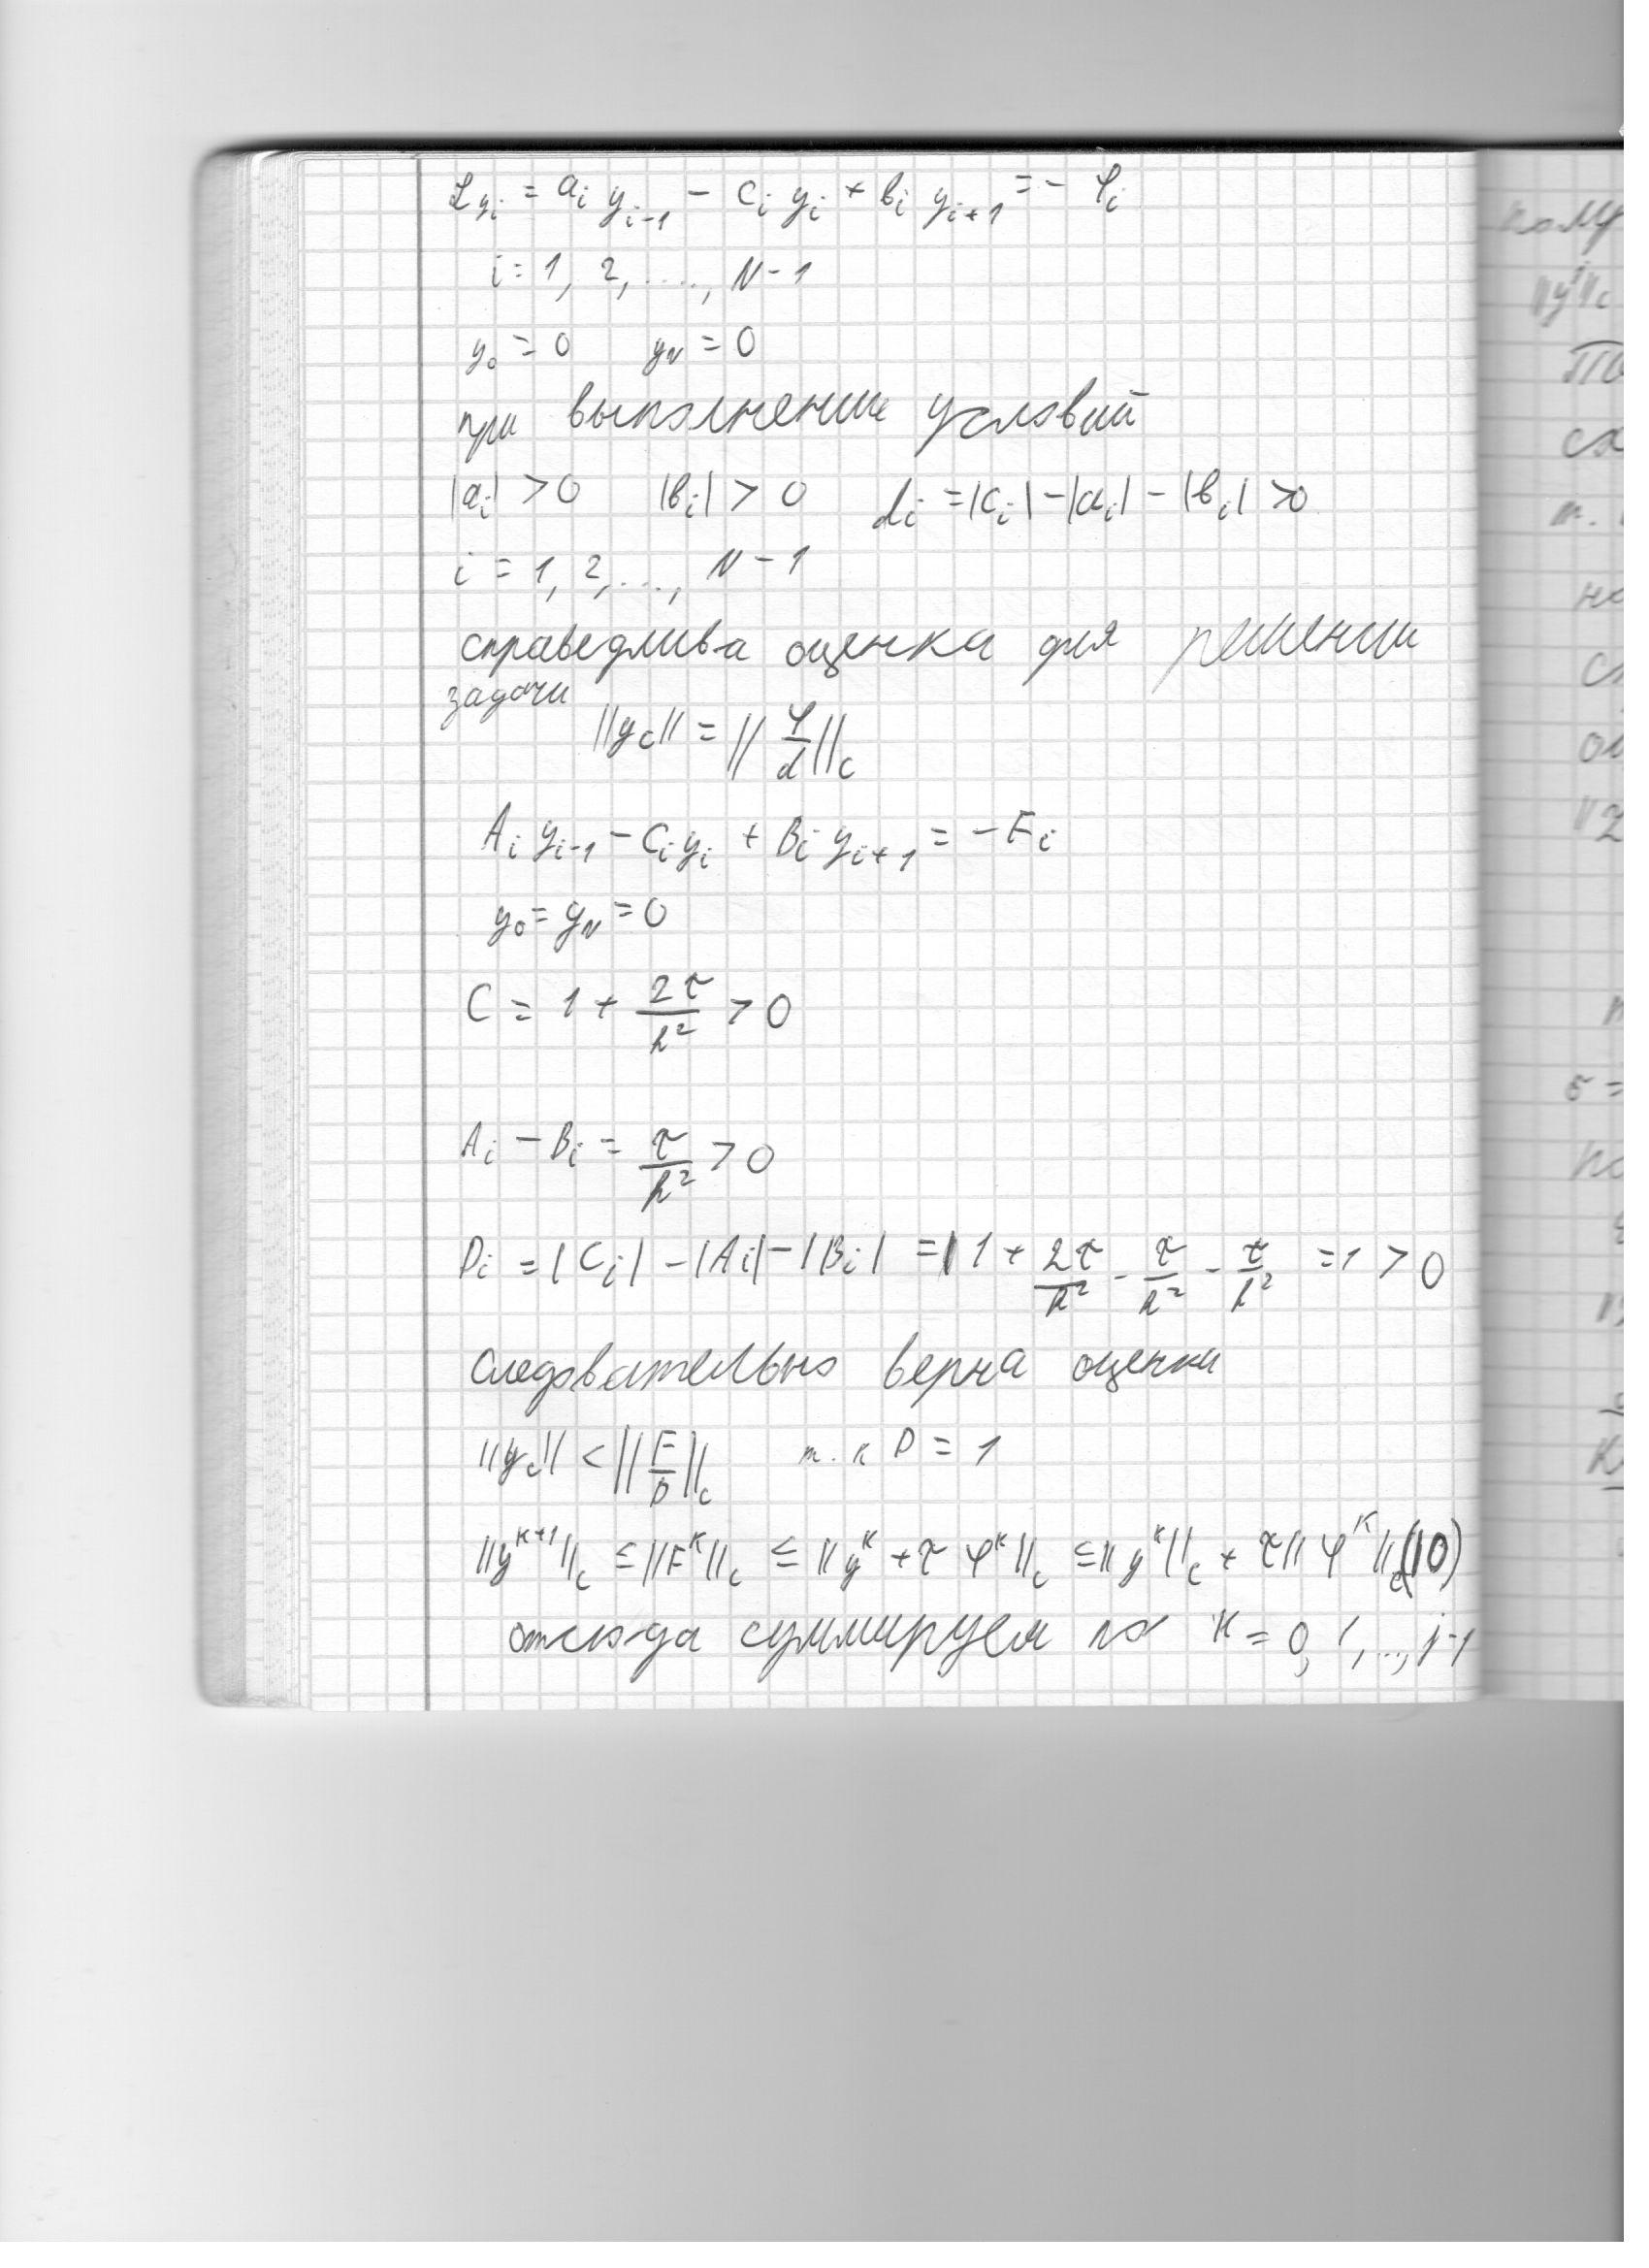 ℒyᵢ = aᵢ yᵢ₋₁ - cᵢ yᵢ + bᵢ yᵢ₊₁ = - φᵢ
i = 1, 2, ...., N - 1
y₀ = 0 y_N = 0
при выполнении условий
|aᵢ| > 0 |bᵢ| > 0 dᵢ = |cᵢ| - |aᵢ| - |bᵢ| > 0
i = 1, 2, ..., N - 1
справедлива оценка для решении
задачи
||y_c|| = ||φ/d||_c
Aᵢ yᵢ₋₁ - Cᵢ yᵢ + Bᵢ yᵢ₊₁ = - Fᵢ
y₀ = y_N = 0
C = 1 + 2τ/h² > 0
Aᵢ - Bᵢ = τ/h² > 0
Dᵢ = |Cᵢ| - |Aᵢ| - |Bᵢ| = | 1 + 2τ/h² - τ/h² - τ/h² = 1 > 0
следовательно верна оценка
||y_c|| < ||F/D||_c т. к D = 1
||y^{k+1}||_c ≤ ||F^k||_c ≤ ||y^k + τ φ^k||_c ≤ ||y^k||_c + τ|| φ^k||_c (10)
отсюда суммируем по k = 0, 1, .., j-1